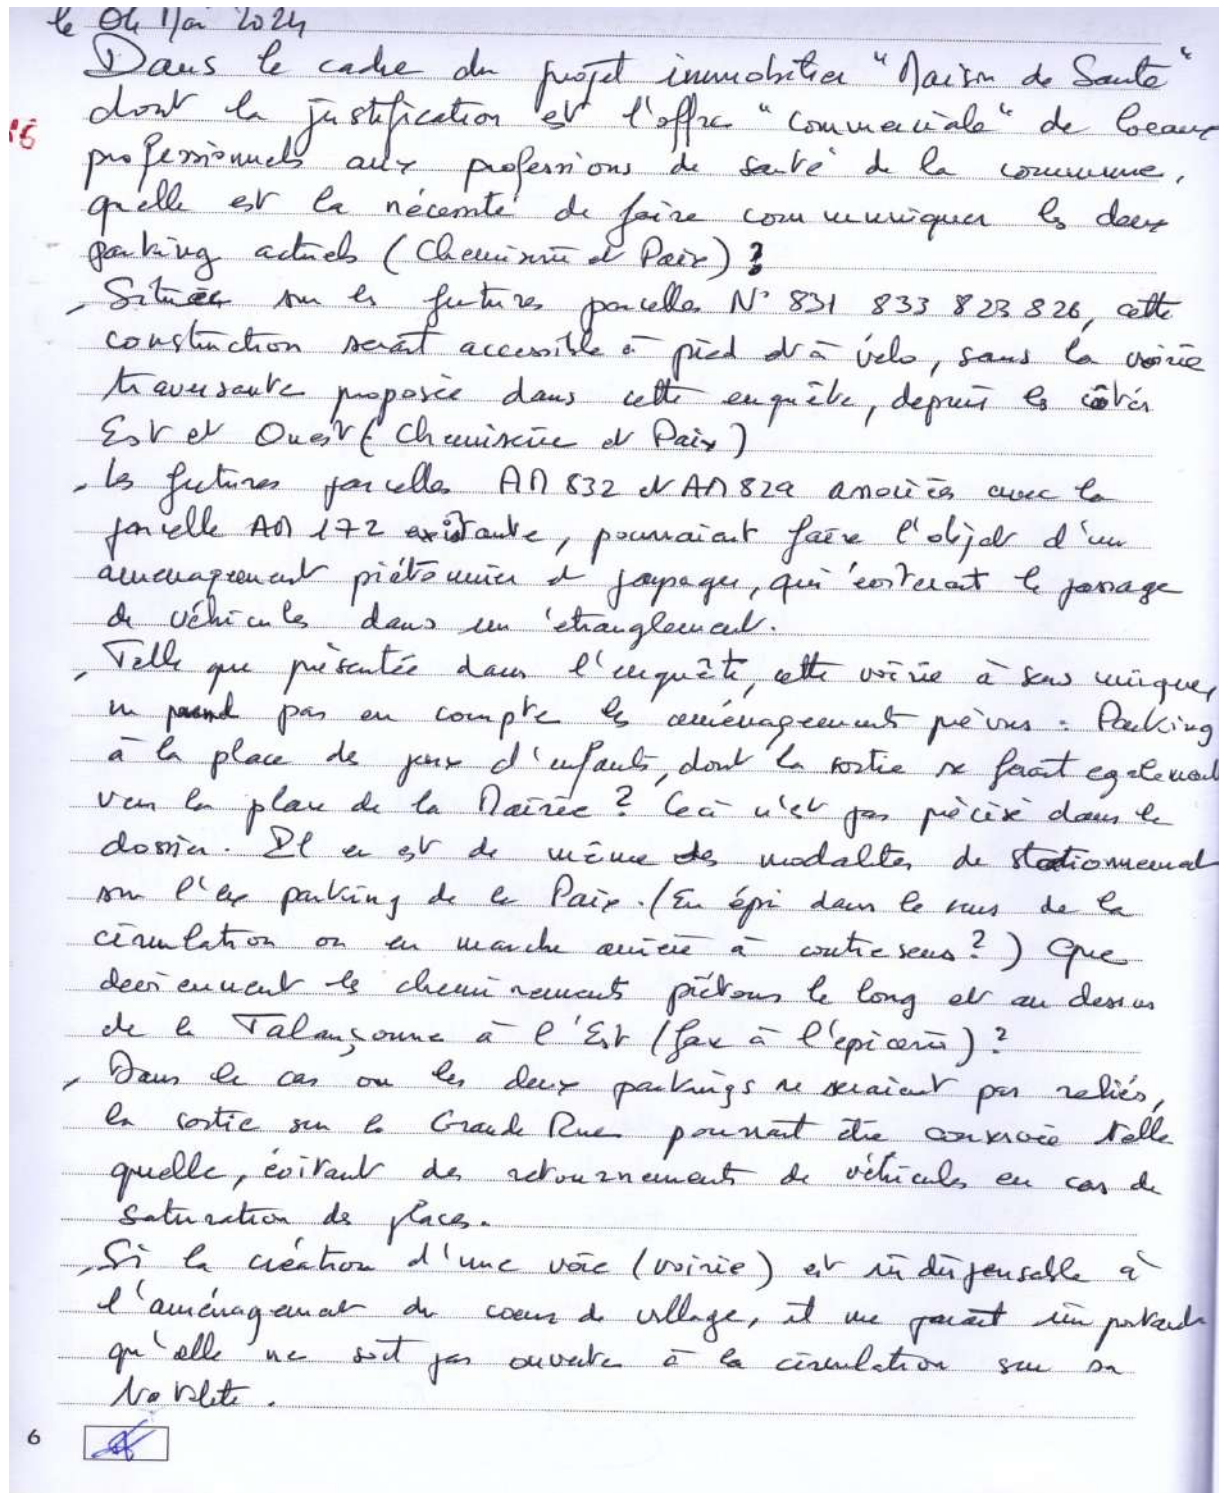 le 04 Mai 2024
Dans le cadre du projet immobilier "Maison de Santé"
dont la justification est l'offre "commerciale" de locaux
professionnels aux professions de santé de la commune,
quelle est la nécessité de faire communiquer les deux
parking actuels (Chemiserie et Paix) ?
- Située sur les futures parcelles N° 831 833 823 826, cette
construction serait accessible à pied et à vélo, sans la voirie
traversante proposée dans cette enquête, depuis les côtés
Est et Ouest (Chemiserie et Paix)
- les futures parcelles AM 832 et AM 829 associées avec la
parcelle AM 172 existante, pourraient faire l'objet d'un
aménagement piétonnier et paysager, qui éviterait le passage
de véhicules dans un étranglement.
- Telle que présentée dans l'enquête, cette voirie à sens unique,
ne prend pas en compte les aménagements prévus : Parking
à la place des jeux d'enfants, dont la sortie se ferait egalement
vers la place de la Mairie ? Ceci n'est pas précisé dans le
dossier. Il en est de même des modalités de stationnement
sur l'ex parking de la Paix. (En épi dans le sens de la
circulation ou en marche arrière à contre sens ?) Que
deviennent les cheminements piétons le long et au dessus
de la Talançonne à l'Est (face à l'épicerie) ?
- Dans le cas ou les deux parkings ne seraient pas reliés,
la sortie sur la Grande Rue pourrait être conservée telle
quelle, évitant des retournements de véhicules en cas de
saturation des places.
- Si la création d'une voie (voirie) est indispensable à
l'aménagement du coeur de village, il me parait important
qu'elle ne soit pas ouverte à la circulation sur sa
totalité.
6